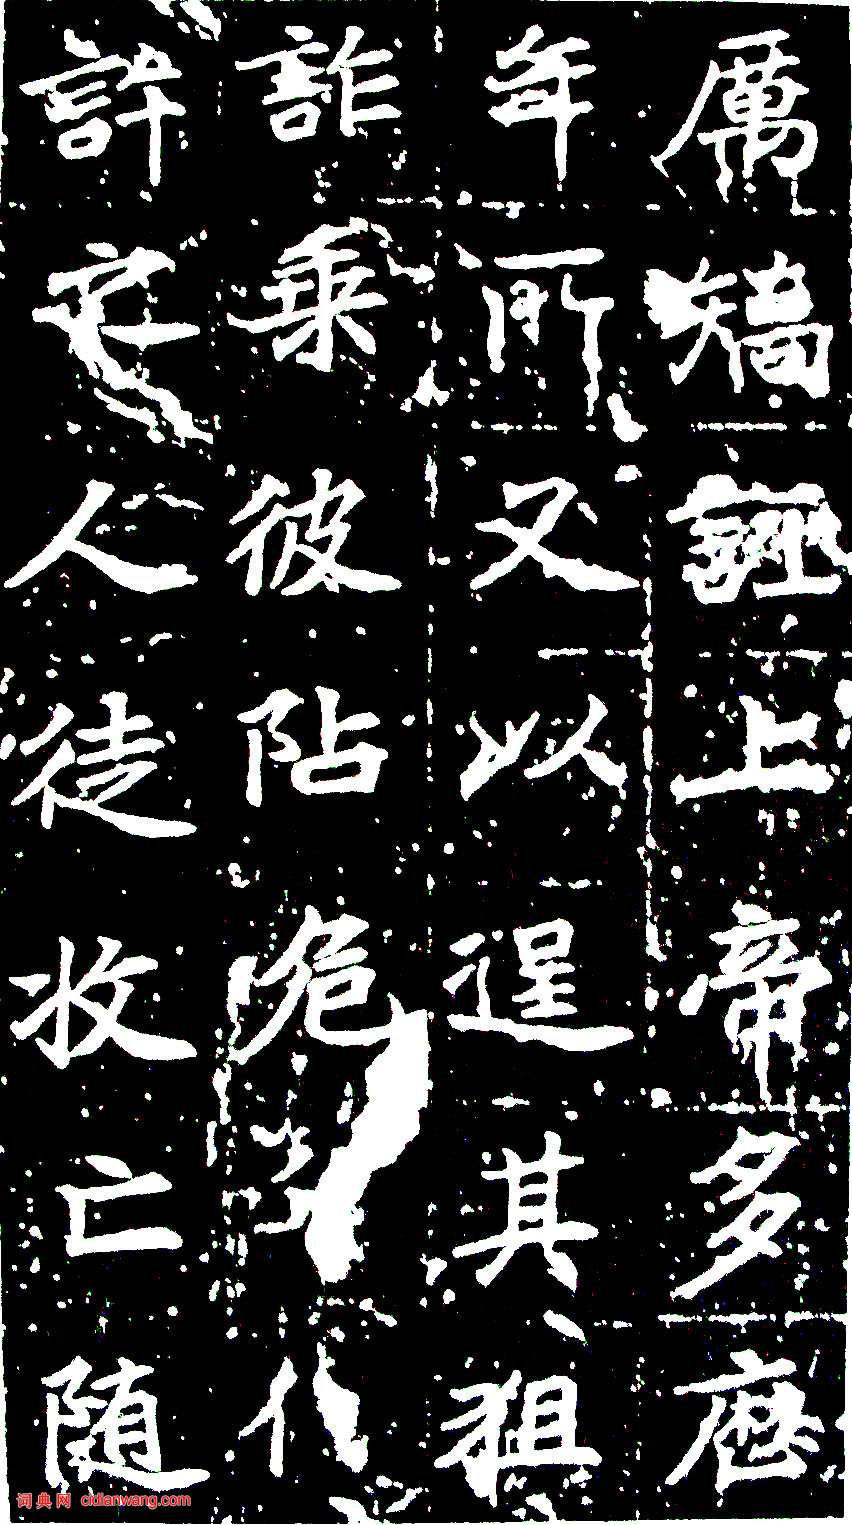 厲矯誣上帝多歷
年所又以逞其狙
詐乘彼阽危代
許人徒收亡随
词典网 cidianwang.com